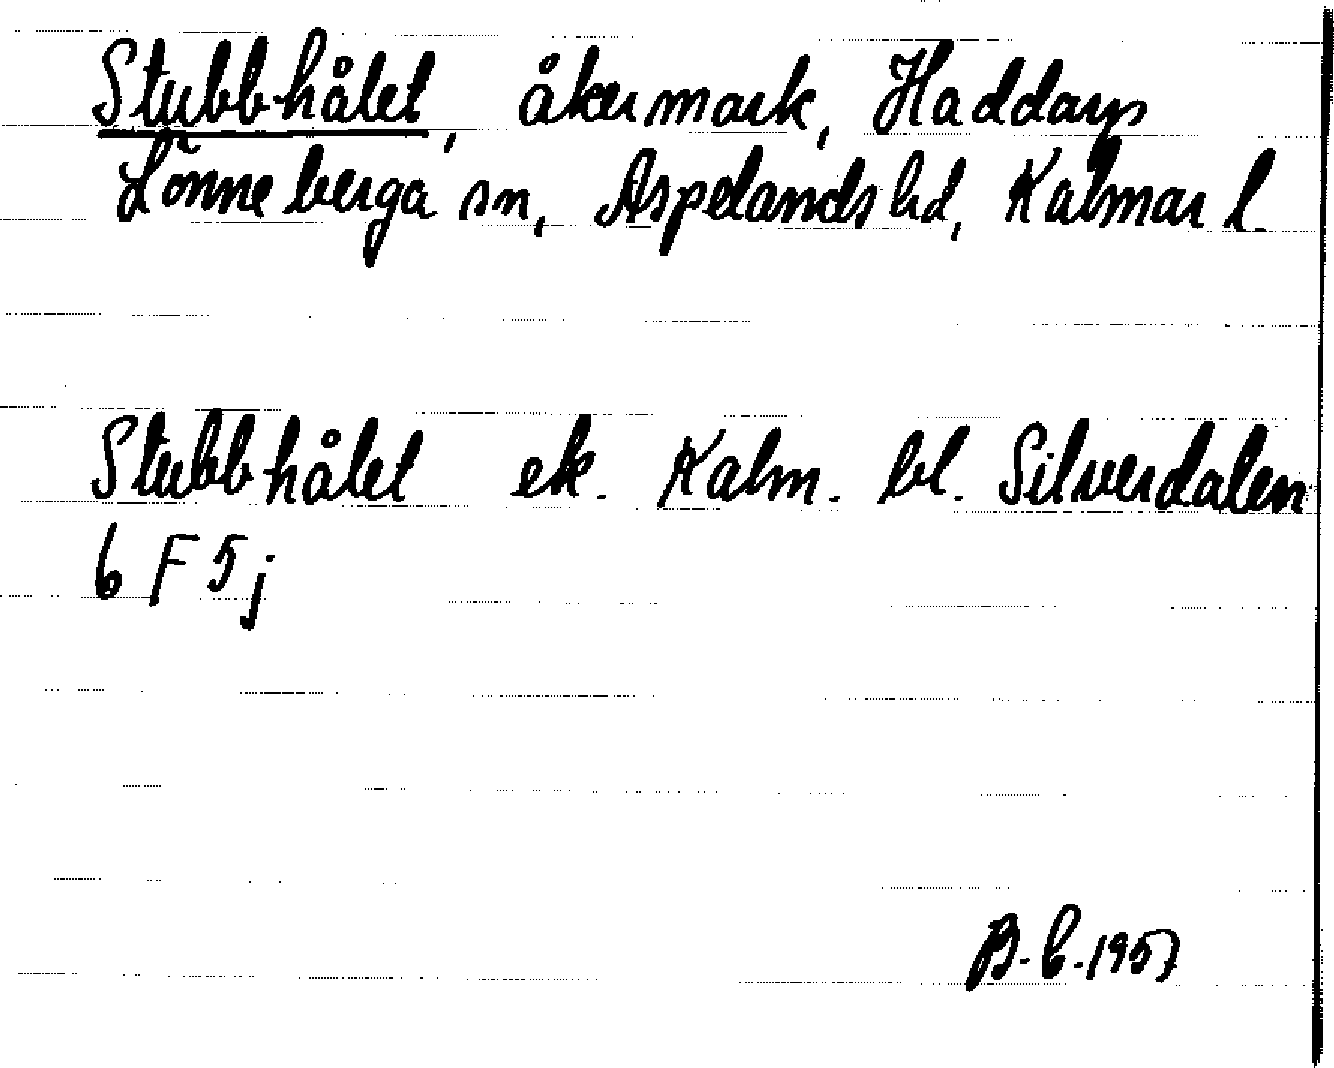 Stubbhålet, åkermark, Haddarps
Lönneberga sn, Aspelands hd, Kalmar l.
Stubbhålet ek. Kalm. bl. Silverdalen
6 F 5 j
B. E. 1957